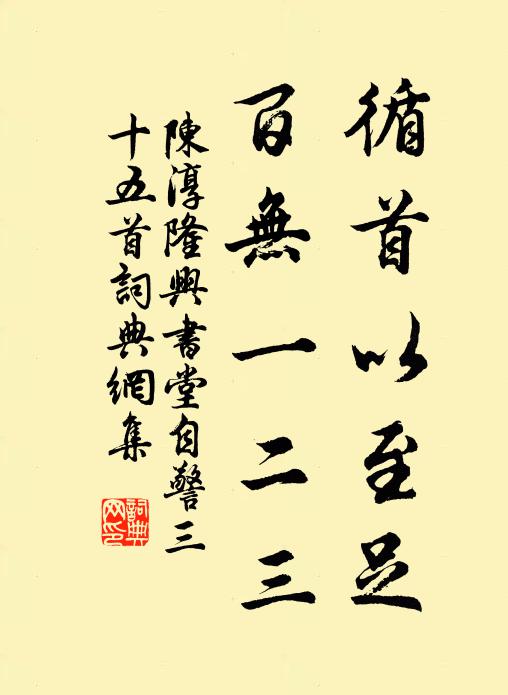 循首以至足
百無一二三
陳淳隆興書堂自警三
十五首詞典網集
詞典
网印